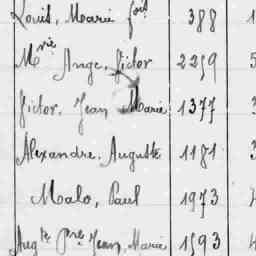 Louis, Marie fois 388 1
Mrie Ange, Victor 2259 5
Victor, Jean Marie 1377 3
Alexandre, Auguste 1181 3
Malo, Paul 1973
Augte Pre Jean, Marie 1593 4